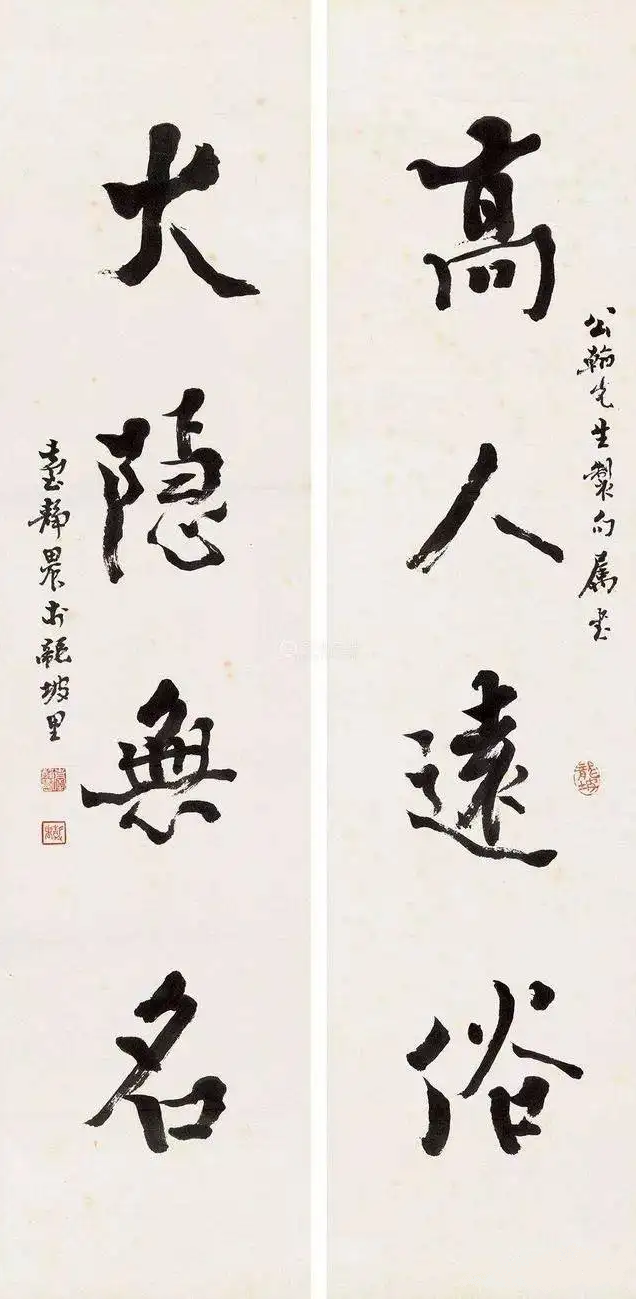 公翰先生製句屬書
高人遠俗
大隐無名
臺静農於龍坡里